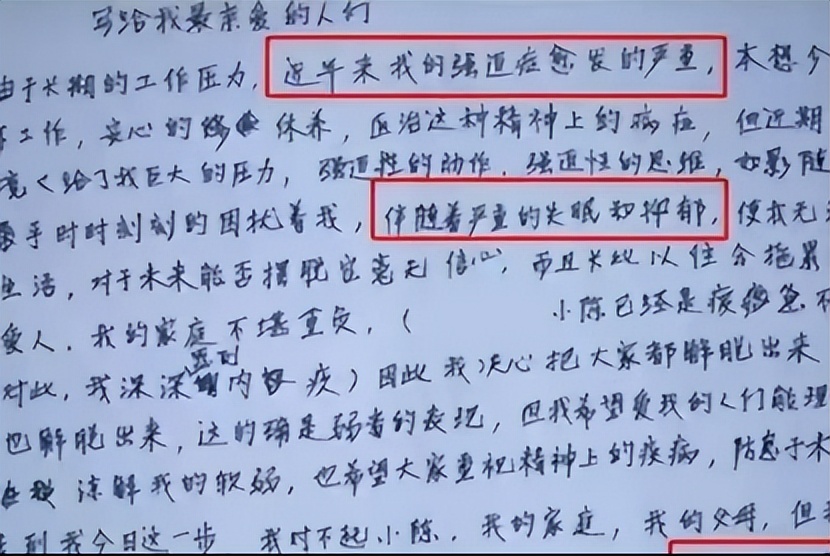 写给我最亲爱的人们
由于长期的工作压力,近年来我的强迫症愈发的严重,本想今
工作,安心的休养,医治这种精神上的病症,但近期
境给了我巨大的压力,强迫性的动作.强迫性的思维,如影随
乎时时刻刻的困扰着我,伴随着严重的失眠和抑郁,使我无
生活,对于未来能否摆脱它毫无信心,而且长此以往会拖累
爱人.我的家庭不堪重负.( 小陈已经是疲惫不
对此,我深深内疚)因此我决心把大家都解脱出来
也解脱出来,这的确是弱者的表现,但我希望爱我的人们能理
谅解我的软弱,也希望大家重视精神上的疾病,防患于未
到我今日这一步 我对不起小陈.我的家庭,我的父母,但我